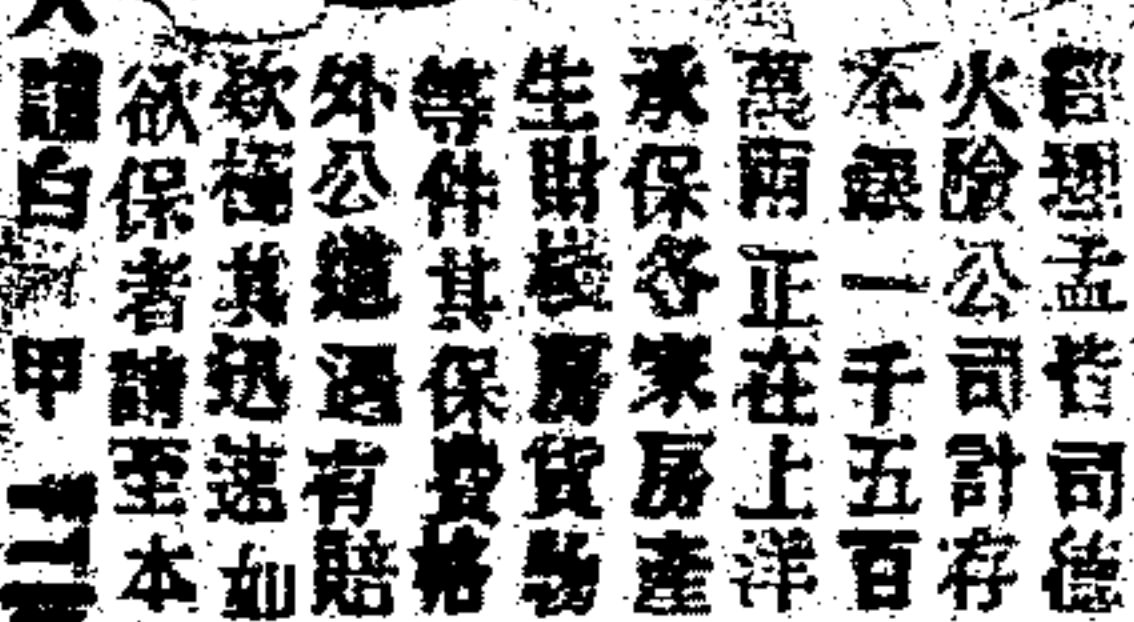 經理孟哲司德
火險公司計存
本銀一千五百
萬兩正在上洋
承保各家房產
生財棧房貨物
等件其保費格
外公道遇有賠
欵極其迅速如
欲保者請至本
白
甲